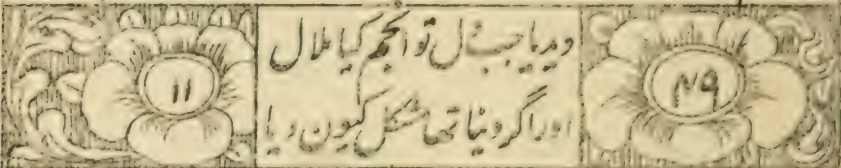 ۴۹
دیدیا جب دل تو انجم کیا ملال
اور اگر دینا تھا مشکل کیون دیا
۱۱